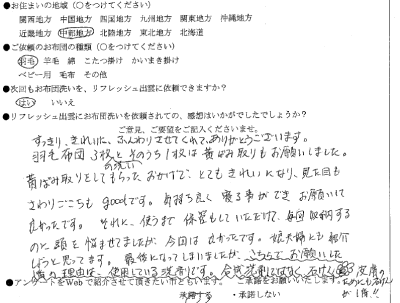 ●お住まいの地域（○をつけてください）
関西地方 中国地方 四国地方 九州地方 関東地方 沖縄地方
近畿地方 中部地方 北陸地方 東北地方 北海道
●ご依頼のお布団の種類（○をつけてください）
羽毛 羊毛 綿 こたつ掛け かいまき掛け
ベビー用 毛布 その他
●次回もお布団洗いを、リフレッシュ出雲に依頼できますか？
はい いいえ
●リフレッシュ出雲にお布団洗いを依頼されての、感想はいかがでしたでしょうか？
ご意見、ご要望をご記入くださいませ。
すっきり、きれいに、ふんわりさせてくれて、ありがとうございます。
羽毛布団3枚とそのうち1枚は黄ばみ取りもお願いしました。
の洗い
黄ばみ取りをしてもらったおかげで、とてもきれいになり、見た目も
さわりごこちもgoodです。気持ち良く寝る事ができ お願いして
良かったです。それに、使うまで保管もしていただけて、毎回収納する
のに頭を悩ませてましたが、今回は良かったです。娘夫婦にも紹介
しようと思ってます。最後になってしまいましたが、こちらでお願いした
1番の理由は、使用している洗剤です。合成洗剤ではなく石けん 皮膚の
ためにもこれが
1番!!
●アンケートをWebで紹介させて頂きたい市ともいます。ご承諾をお願いいたします。
承諾する ・承諾しない